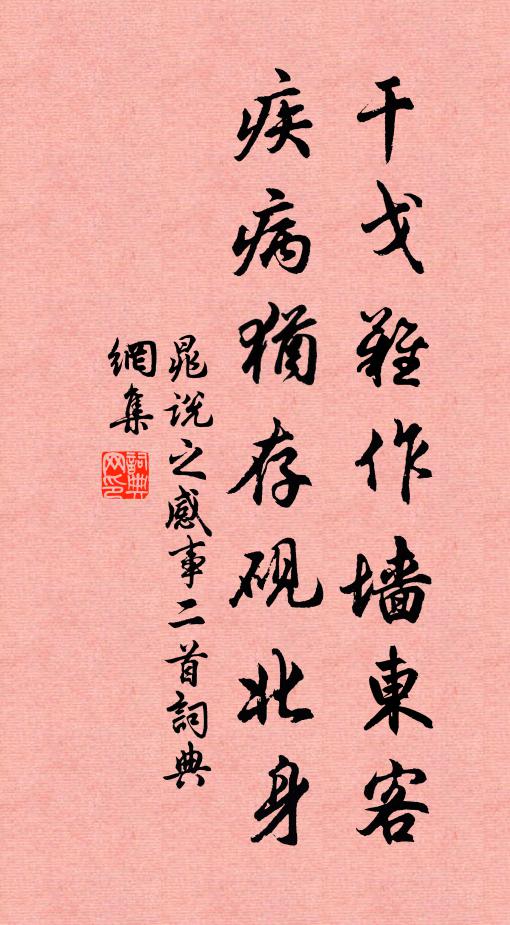 干戈難作墙東客
疾病猶存硯北身
晁説之感事二首詞典
網集
詞典网印